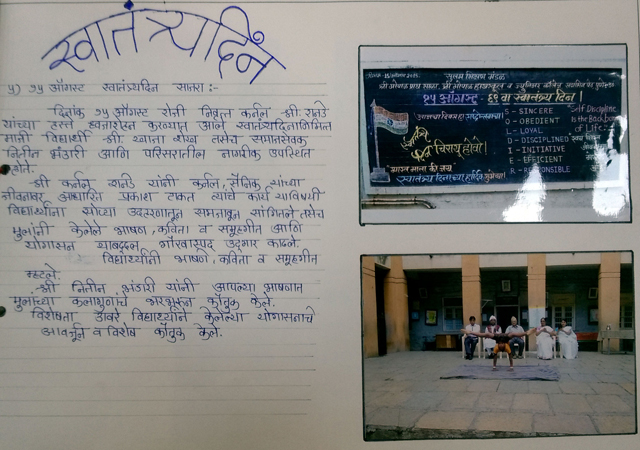 स्वातंत्र्यदिन
५) १५ ऑगस्ट स्वातंत्र्यदिन साजरा :-
दिनांक १५ ऑगस्ट रोजी निवृत्त कर्नल श्री. रानडे
यांच्या हस्ते ध्वजारोहन करण्यात आले स्वातंत्र्यदिनानिमित्त
माजी विद्यार्थी श्री. ख्वाजा शेख तसेच समाजसेवक
नितीन भंडारी आणि परिसरातील नागरीक उपस्थित
होते.
श्री कर्नल रानडे यांनी कर्नल, सैनिक यांच्या
जीवनावर आधारित प्रकाश टाकत त्यांचे कार्य याविषयी
विद्यार्थ्यांना सोप्या उदाहरणातून समजावून सांगितले तसेच
मुलांनी केलेले भाषण, कविता व समूहगीत आणि
योगासन याबद्दल गौरवास्पद उद्गार काढले.
विद्यार्थ्यांनी भाषण, कविता व समूहगीत
म्हटले.
श्री नितीन भंडारी यांनी आपल्या भाषणात
मुलांच्या कलागुणांचे भरभरून कौतुक केले.
विशेषता विद्यार्थ्याने केलेल्या योगासनाचे
आवर्जून व विशेष कौतुक केले.
सुलभ शिक्षण मंडळ
१५ ऑगस्ट : ६९ वा स्वातंत्र्य दिन !
स्वातंत्र्य दिन चिरायु होवो !
भारत माता की जय
स्वातंत्र्य दिनाच्या हार्दिक शुभेच्छा !
S - SINCERE
O - OBEDIENT
L - LOYAL
D - DISCIPLINED
I - INITIATIVE
E - EFFICIENT
R - RESPONSIBLE
Self Discipline
is the Backbone
of Life